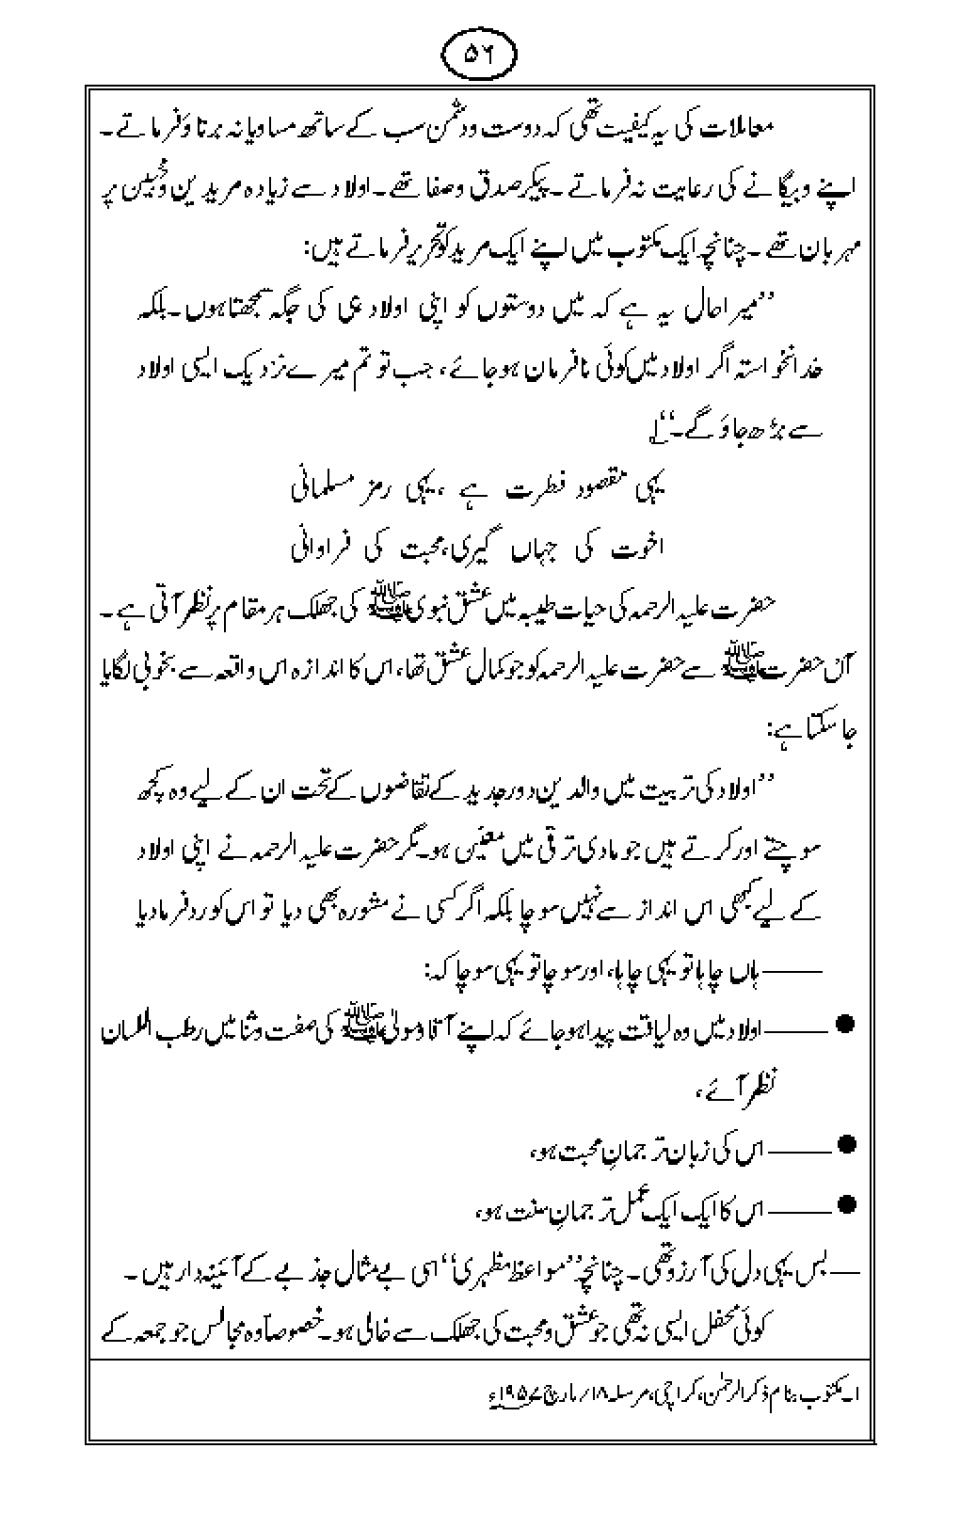 ۵۶
معاملات کی یہ کیفیت تھی کہ دوست ودشمن سب کے ساتھ مساویانہ برتاؤ فرماتے۔
اپنے وبیگانے کی رعایت نہ فرماتے۔ پیکر صدق وصفا تھے۔ اولاد سے زیادہ مریدین ومحبین پر
مہربان تھے۔ چنانچہ ایک مکتوب میں اپنے ایک مرید کو تحریر فرماتے ہیں:
”میرا حال یہ ہے کہ میں دوستوں کو اپنی اولاد ہی کی جگہ سمجھتا ہوں۔ بلکہ
خدانخواستہ اگر اولاد میں کوئی نافرمان ہوجائے، جب تو تم میرے نزدیک ایسی اولاد
سے بڑھ جاؤ گے۔“ ۱
یہی مقصود فطرت ہے ، یہی رمز مسلمانی
اخوت کی جہاں گیری، محبت کی فراوانی
حضرت علیہ الرحمہ کی حیات طیبہ میں عشق نبوی ﷺ کی جھلک ہر مقام پر نظر آتی ہے۔
آں حضرت ﷺ سے حضرت علیہ الرحمہ کو جو کمال عشق تھا، اس کا اندازہ اس واقعہ سے بخوبی لگایا
جاسکتا ہے:
”اولاد کی تربیت میں والدین دور جدید کے تقاضوں کے تحت ان کے لیے وہ کچھ
سوچتے اور کرتے ہیں جو مادی ترقی میں معین ہو۔ مگر حضرت علیہ الرحمہ نے اپنی اولاد
کے لیے کبھی اس انداز سے نہیں سوچا بلکہ اگر کسی نے مشورہ بھی دیا تو اس کو رد فرمادیا
—— ہاں چاہا تو یہی چاہا، اور سوچا تو یہی سوچا کہ:
● —— اولاد میں وہ لیاقت پیدا ہوجائے کہ اپنے آقا ومولیٰ ﷺ کی صفت وثنا میں رطب اللسان
نظر آئے،
● —— اس کی زبان ترجمانِ محبت ہو،
● —— اس کا ایک ایک عمل ترجمانِ سنت ہو،
— بس یہی دل کی آرزو تھی۔ چنانچہ ”مواعظ مظہری“ اسی بے مثال جذبے کے آئینہ دار ہیں۔
کوئی محفل ایسی نہ تھی جو عشق ومحبت کی جھلک سے خالی ہو۔ خصوصاً وہ مجالس جو جمعہ کے
۱۔ مکتوب بنام ذکر الرحمٰن، کراچی، مرسلہ ۱۸/ مارچ ۱۹۵۷ء